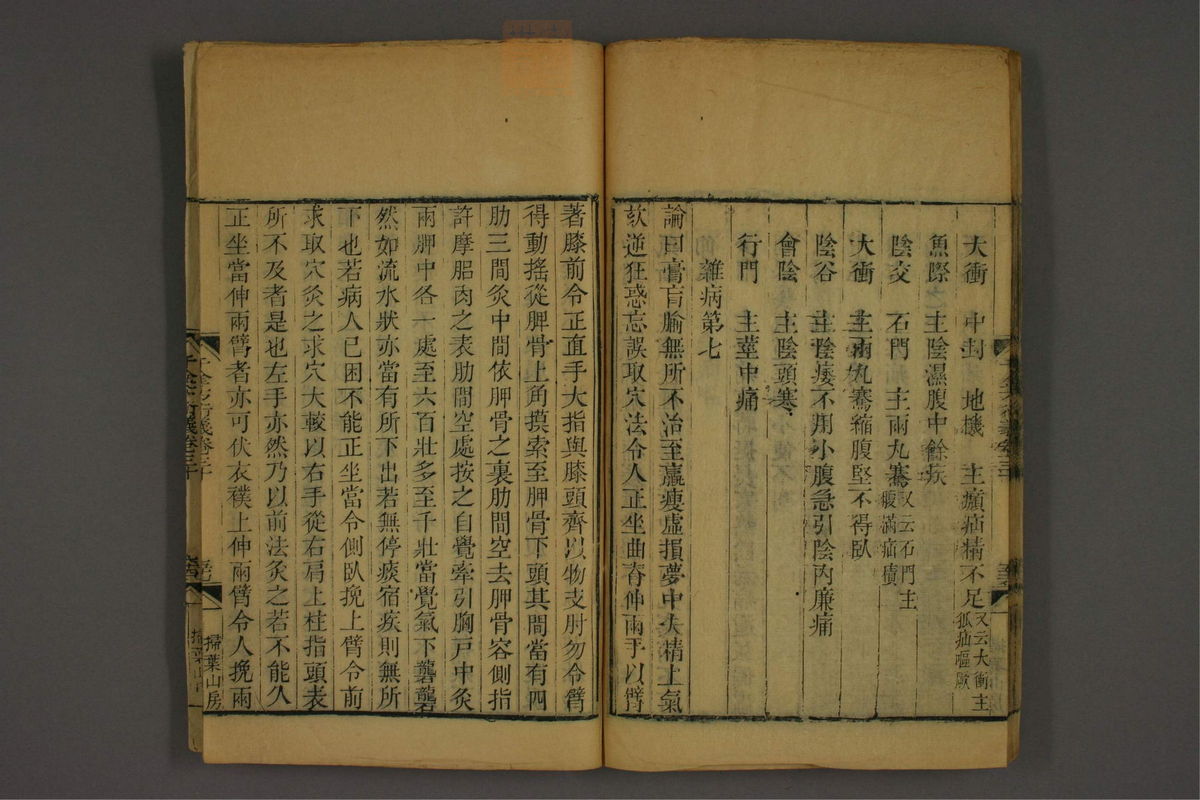 大衝 中封 地機 主㿗疝精不足又云大衝主狐疝嘔厥
魚際 主陰濕腹中餘疾
陰交 石門 主兩丸騫又云石門主腹滿疝積
大衝 主兩丸騫縮腹堅不得臥
陰谷 主陰痿不用小腹急引陰內廉痛
會陰 主陰頭寒
行門 主莖中痛
雜病第七
論曰膏肓腧無所不治主羸瘦虛損夢中失精上氣
欬逆狂惑忘誤取穴法令人正坐曲脊伸兩手以臂
著膝前令正直手大指與膝頭齊以物支肘勿令臂
得動搖從胛骨上角摸索至胛骨下頭其間當有四
肋三間灸中間依胛骨之裏肋間空去胛骨容側指
許摩𦛗肉之表肋間空處按之自覺牽引胸戸中灸
兩胛中各一處至六百壯多至千壯當覺氣下礱礱
然如流水狀亦當有所下出若無停痰宿疾則無所
下也若病人已困不能正坐當令側臥挽上臂令前
求取穴灸之求穴大較以右手從右肩上柱指頭表
所不及者是也左手亦然乃以前法灸之若不能久
正坐當伸兩臂者亦可伏衣襆上伸兩臂令人挽兩
掃葉山房